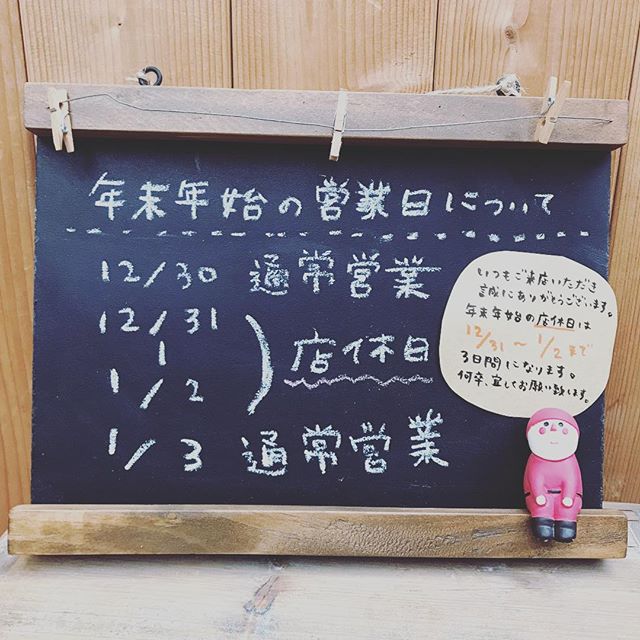 年末年始の営業日について
12/30 通常営業
12/31
|
1/2
店休日
1/3 通常営業
いつもご来店いただき
誠にありがとうございます。
年末年始の店休日は
12/31〜1/2まで
3日間になります。
何卒、宜しくお願い致します。